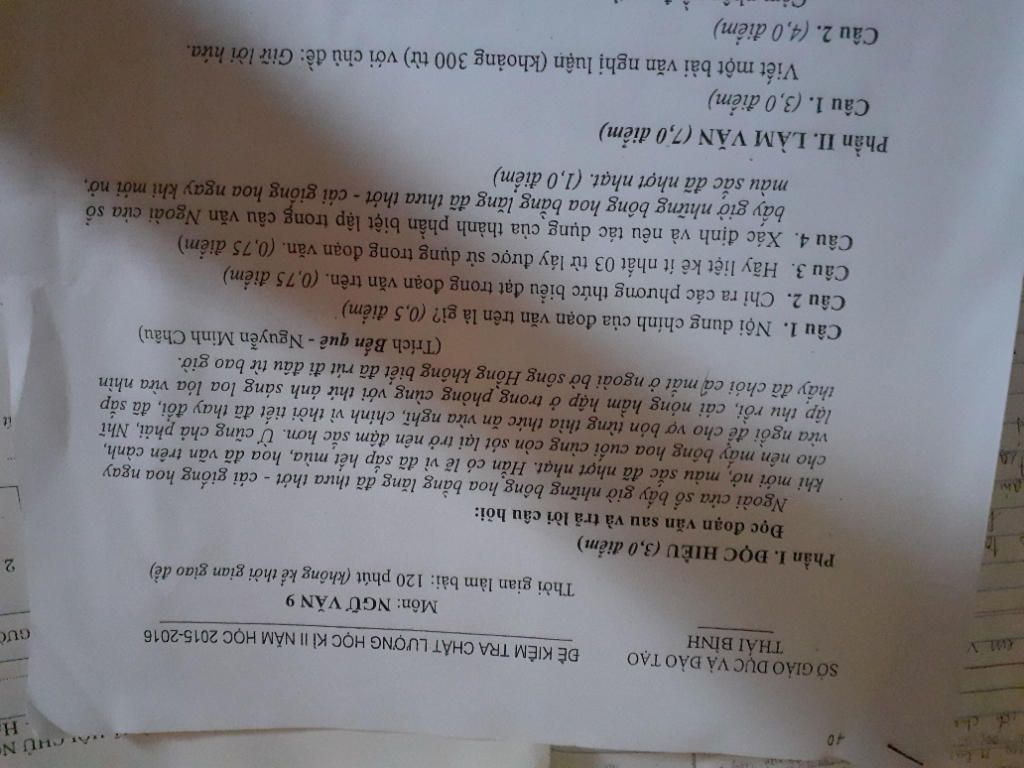 10
SỞ GIÁO DỤC VÀ ĐÀO TẠO
THÁI BÌNH
ĐỀ KIỂM TRA CHẤT LƯỢNG HỌC KÌ II NĂM HỌC 2015-2016
Môn: NGỮ VĂN 9
Thời gian làm bài: 120 phút (không kể thời gian giao đề)
Phần I. ĐỌC HIỂU (3,0 điểm)
Đọc đoạn văn sau và trả lời câu hỏi:
Ngoài cửa sổ bấy giờ những bông hoa bằng lăng đã thưa thớt - cái giống hoa ngay
khi mới nở, màu sắc đã nhợt nhạt. Hẳn có lẽ vì đã sắp hết mùa, hoa đã vãn trên cành,
cho nên mấy bông hoa cuối cùng còn sót lại trở nên đậm sắc hơn. Ừ cũng chả phải, Nhĩ
vừa ngồi để cho vợ bón từng thìa thức ăn vừa nghĩ, chính vì thời tiết đã thay đổi, đã sắp
lập thu rồi, cái nóng hầm hập ở trong phòng cùng với thứ ánh sáng loa lóa vừa nhìn
thấy đã chói cả mắt ở ngoài bờ sông Hồng không biết đã rút đi đâu từ bao giờ.
(Trích Bến quê - Nguyễn Minh Châu)
Câu 1. Nội dung chính của đoạn văn trên là gì? (0,5 điểm)
Câu 2. Chỉ ra các phương thức biểu đạt trong đoạn văn trên. (0,75 điểm)
Câu 3. Hãy liệt kê ít nhất 03 từ láy được sử dụng trong đoạn văn. (0,75 điểm)
Câu 4. Xác định và nêu tác dụng của thành phần biệt lập trong câu văn Ngoài cửa sổ
bấy giờ những bông hoa bằng lăng đã thưa thớt - cái giống hoa ngay khi mới nở,
màu sắc đã nhợt nhạt. (1,0 điểm)
Phần II. LÀM VĂN (7,0 điểm)
Câu 1. (3,0 điểm)
Viết một bài văn nghị luận (khoảng 300 từ) với chủ đề: Giữ lời hứa.
Câu 2. (4,0 điểm)